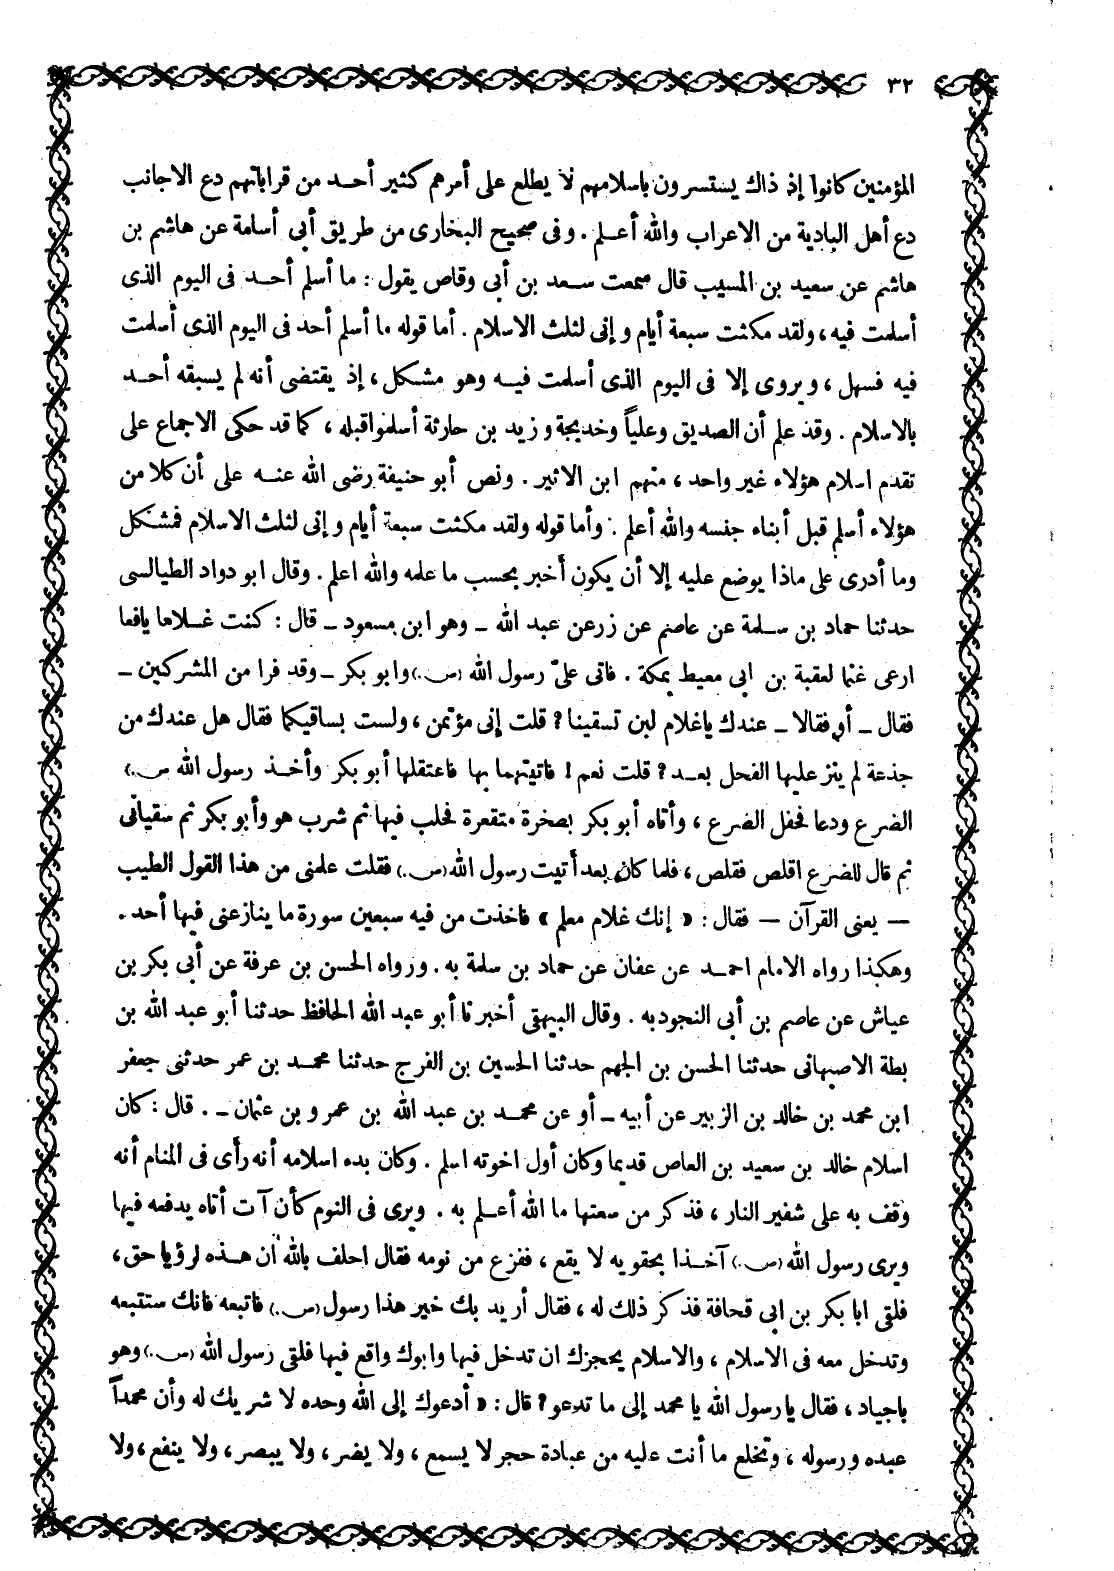 ٣٢
المؤمنين كانوا إذ ذاك يستسرون باسلامهم لا يطلع على أمرهم كثير أحد من قراباتهم دع الاجانب
دع أهل البادية من الاعراب والله أعلم . وفى صحيح البخارى من طريق أبى أسامة عن هاشم بن
هاشم عن سعيد بن المسيب قال سمعت سعد بن أبى وقاص يقول : ما أسلم أحد فى اليوم الذى
أسلمت فيه ، ولقد مكثت سبعة أيام وإنى لثلث الاسلام . أما قوله ما أسلم أحد فى اليوم الذى أسلمت
فيه فسهل ، ويروى إلا فى اليوم الذى أسلمت فيه وهو مشكل ، إذ يقتضى أنه لم يسبقه أحد
بالاسلام . وقد علم أن الصديق وعلياً وخديجة وزيد بن حارثة أسلموا قبله ، كما قد حكى الاجماع على
تقدم اسلام هؤلاء غير واحد ، منهم ابن الاثير . ونص أبو حنيفة رضى الله عنه على أن كلا من
هؤلاء أسلم قبل أبناء جنسه والله أعلم . وأما قوله ولقد مكثت سبعة أيام وإنى لثلث الاسلام فمشكل
وما أدرى على ماذا يوضع عليه إلا أن يكون أخبر بحسب ما علمه والله اعلم . وقال ابو دواد الطيالسى
حدثنا حماد بن سلمة عن عاصم عن زر عن عبد الله ــ وهو ابن مسعود ــ قال : كنت غلاما يافعا
ارعى غنما لعقبة بن ابى معيط بمكة . فاتى علىّ رسول الله (س.) وابو بكر ــ وقد فرا من المشركين ــ
فقال ــ أو فقالا ــ عندك ياغلام لبن تسقينا ? قلت إنى مؤتمن ، ولست بساقيكما فقال هل عندك من
جذعة لم ينز عليها الفحل بعد ? قلت نعم ! فاتيتهما بها فاعتقلها أبو بكر وأخذ رسول الله س.)
الضرع ودعا فحفل الضرع ، وأتاه أبو بكر بصخرة متقعرة فحلب فيها ثم شرب هو وأبو بكر ثم سقيانى
ثم قال للضرع اقلص فقلص ، فلما كان بعد أتيت رسول الله (س.) فقلت علمنى من هذا القول الطيب
— يعنى القرآن — فقال : « إنك غلام معلم » فاخذت من فيه سبعين سورة ما ينازعنى فيها أحد .
وهكذا رواه الامام احمد عن عفان عن حماد بن سلمة به . ورواه الحسن بن عرفة عن أبى بكر بن
عياش عن عاصم بن أبى النجود به . وقال البيهقى أخبرنا أبو عبد الله الحافظ حدثنا أبو عبد الله بن
بطة الاصبهانى حدثنا الحسن بن الجهم حدثنا الحسين بن الفرج حدثنا محمد بن عمر حدثنى جعفر
ابن محمد بن خالد بن الزبير عن أبيه ــ أو عن محمد بن عبد الله بن عمرو بن عثمان ــ . قال : كان
اسلام خالد بن سعيد بن العاص قديما وكان أول اخوته اسلم . وكان بدء اسلامه أنه رأى فى المنام أنه
وقف به على شفير النار ، فذكر من سعتها ما الله أعلم به . ويرى فى النوم كأن آت أتاه يدفعه فيها
ويرى رسول الله (س.) آخذا بحقويه لا يقع ، ففزع من نومه فقال احلف بالله أن هذه لرؤيا حق ،
فلقى ابا بكر بن ابى قحافة فذكر ذلك له ، فقال أريد بك خير هذا رسول (س.) فاتبعه فانك ستتبعه
وتدخل معه فى الاسلام ، والاسلام يحجزك ان تدخل فيها وابوك واقع فيها فلقى رسول الله (س.) وهو
باجياد ، فقال يا رسول الله يا محمد إلى ما تدعو ? قال : « أدعوك إلى الله وحده لا شريك له وأن محمداً
عبده ورسوله ، وتخلع ما أنت عليه من عبادة حجر لا يسمع ، ولا يضر ، ولا يبصر ، ولا ينفع ، ولا